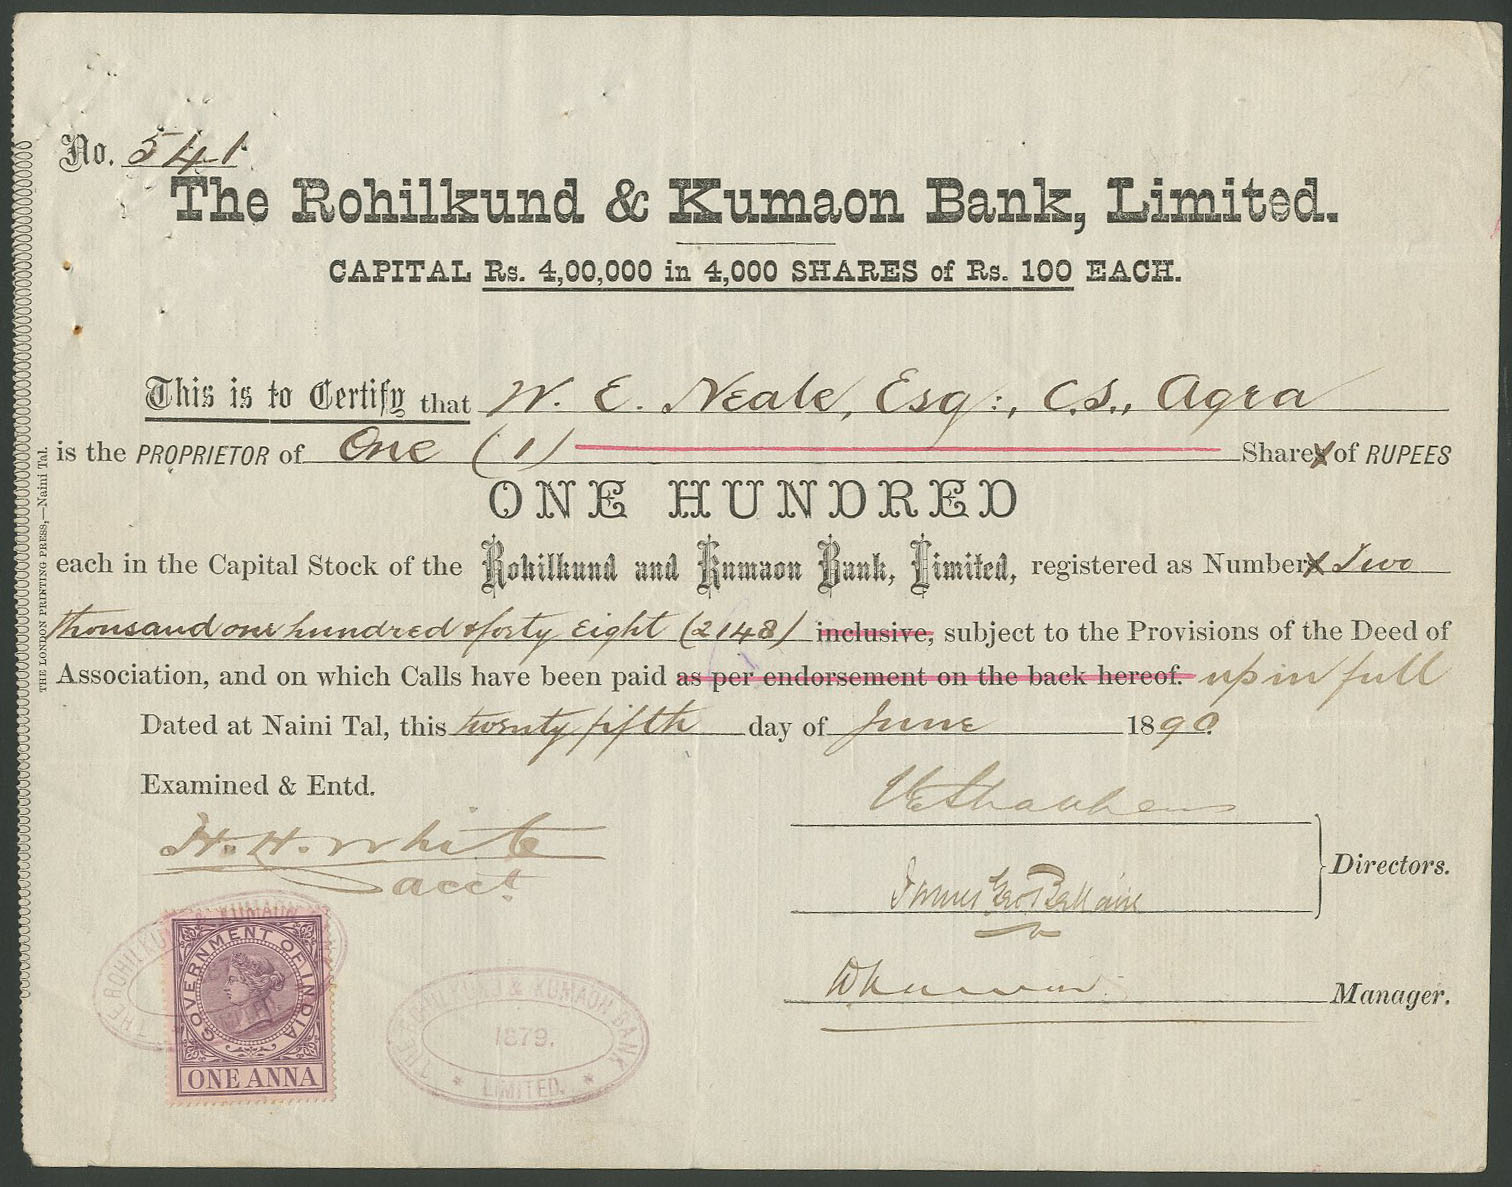 No. 541
The Rohilkund & Kumaon Bank, Limited.
CAPITAL Rs. 4,00,000 in 4,000 SHARES of Rs. 100 EACH.
This is to Certify that W. E. Neale, Esq:, C.S., Agra
is the PROPRIETOR of One (1) Shares of RUPEES
ONE HUNDRED
each in the Capital Stock of the Rohilkund and Kumaon Bank, Limited, registered as Numbers Two
thousand one hundred & forty eight (2148) inclusive, subject to the Provisions of the Deed of
Association, and on which Calls have been paid as per endorsement on the back hereof. up in full
Dated at Naini Tal, this twenty fifth day of June 1890
Examined & Entd.
H. H. White
acct
Directors.
James Geo
Manager.
THE ROHILKUND & KUMAON BANK
GOVERNMENT OF INDIA
ONE ANNA
THE ROHILKUND & KUMAON BANK
1879.
* LIMITED. *
THE LONDON PRINTING PRESS,—Naini Tal.